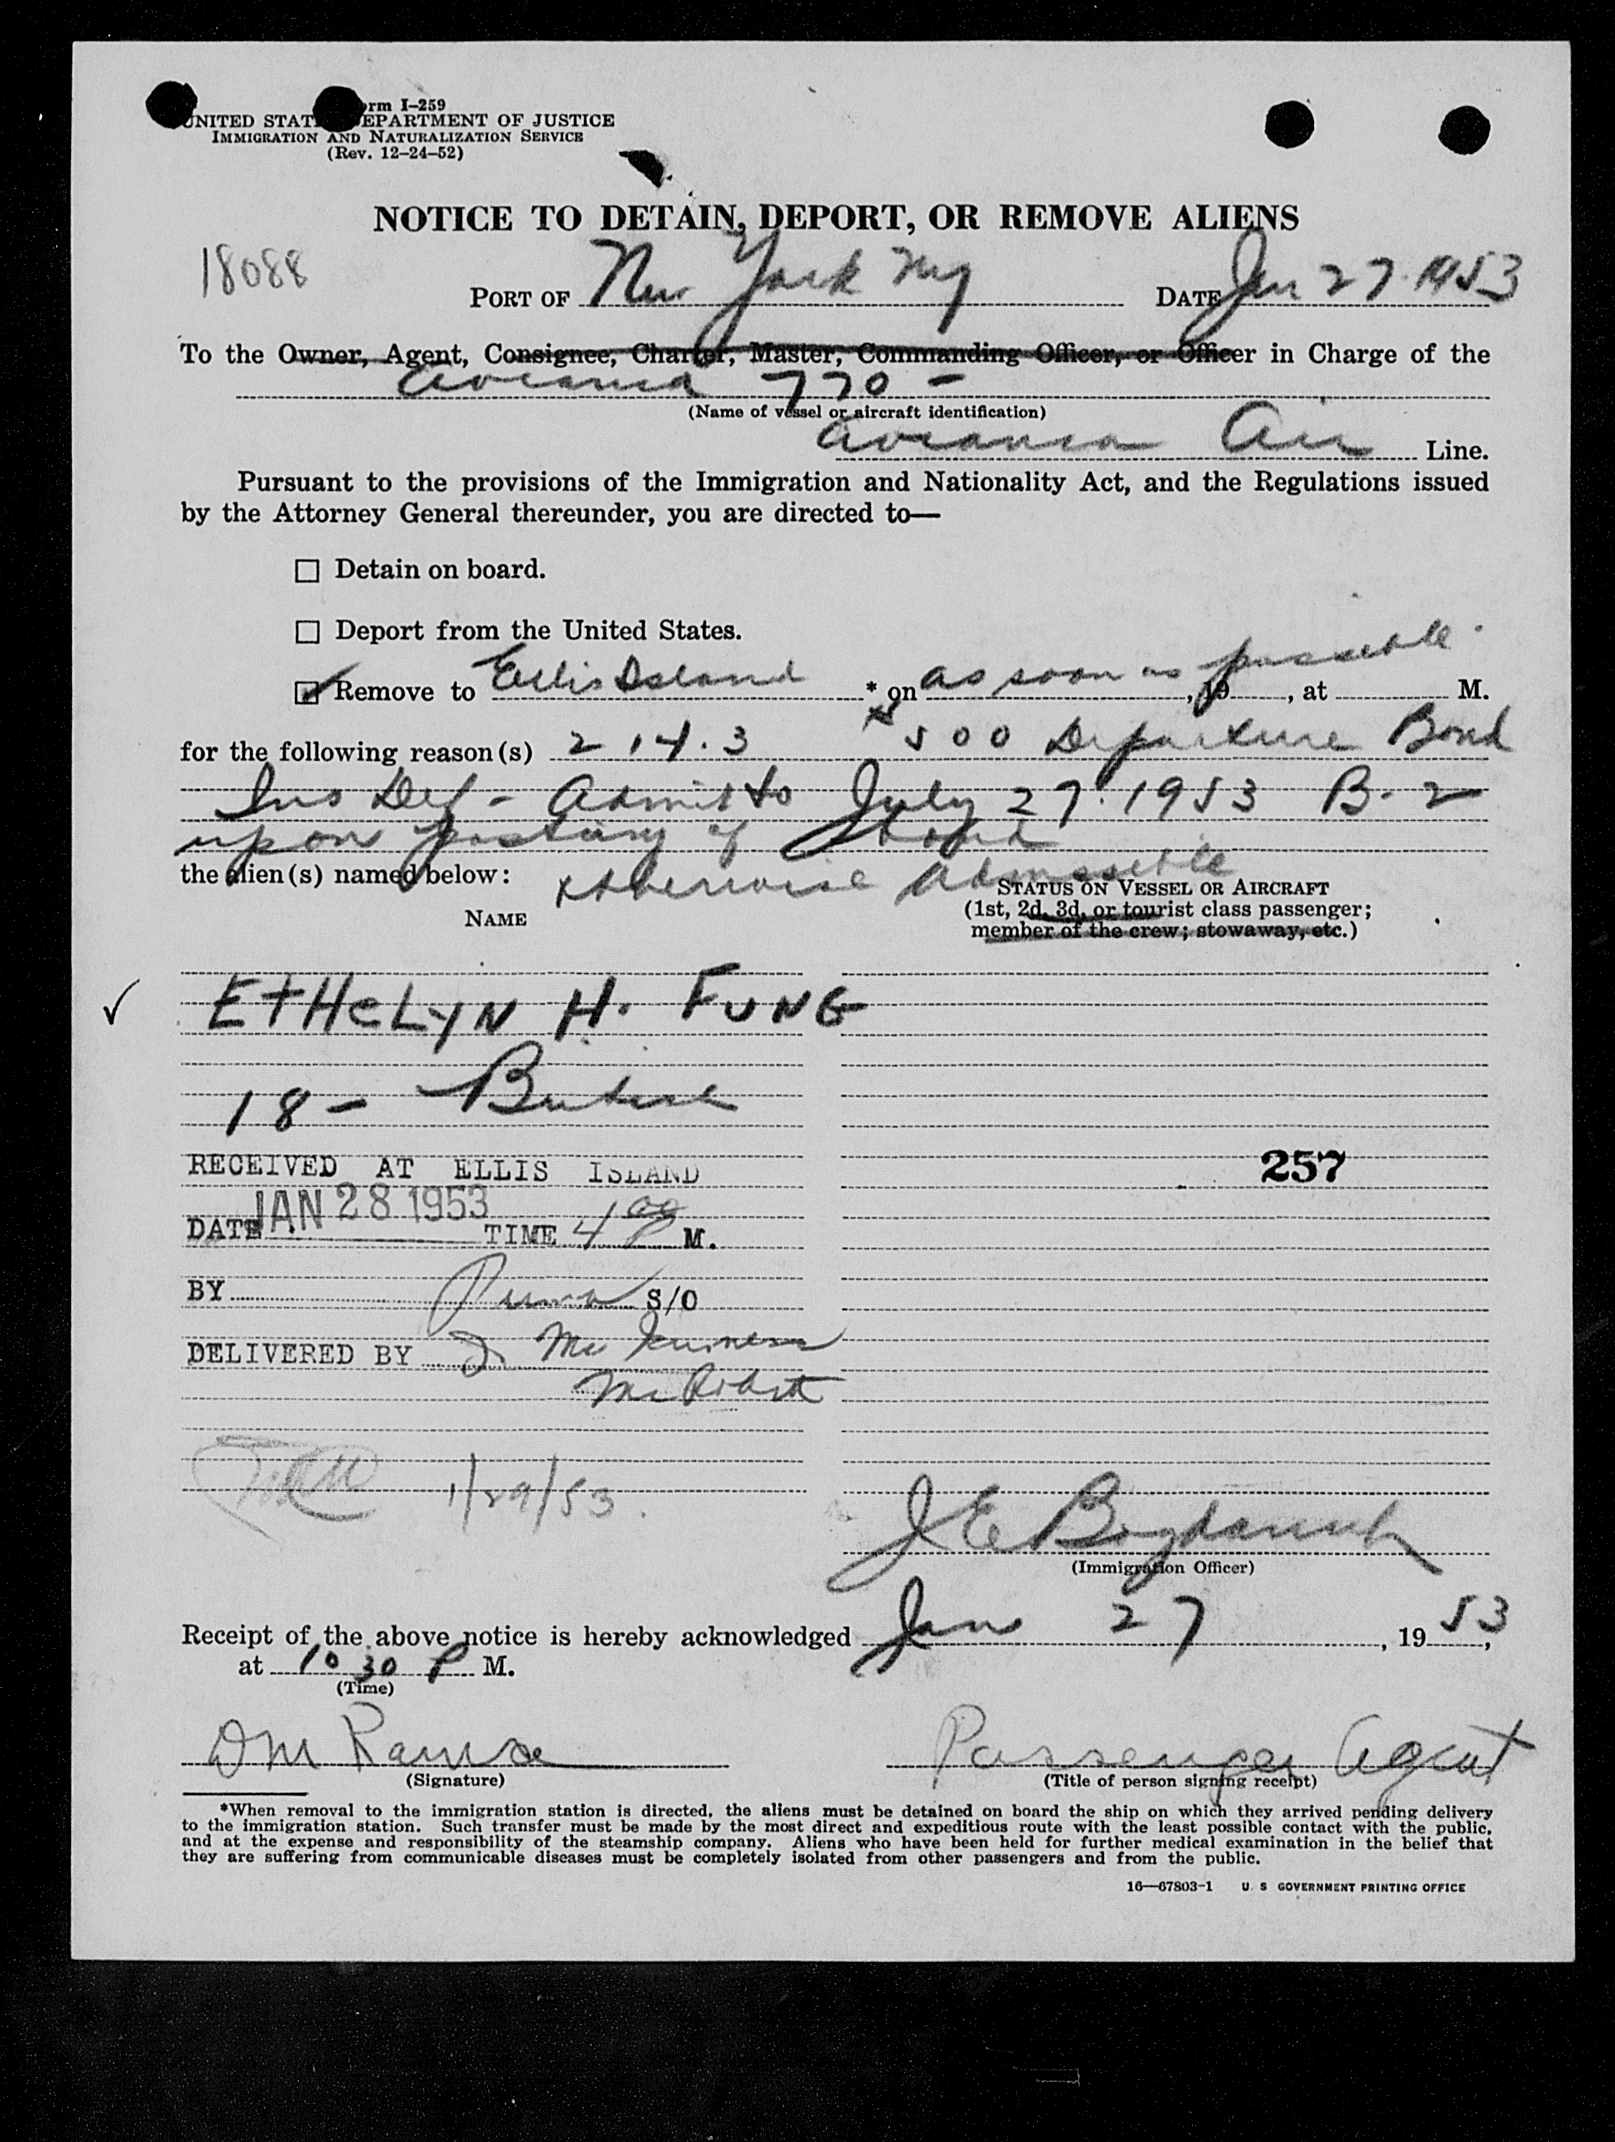 rm I-259
UNITED STAT EPARTMENT OF JUSTICE
IMMIGRATION AND NATURALIZATION SERVICE
(Rev. 12-24-52)
NOTICE TO DETAIN, DEPORT, OR REMOVE ALIENS
18088
PORT OF New York NY DATE Jan 27. 1953
To the Owner, Agent, Consignee, Charter, Master, Commanding Officer, or Officer in Charge of the
Avianca 770 -
(Name of vessel or aircraft identification)
Avianca Air Line.
Pursuant to the provisions of the Immigration and Nationality Act, and the Regulations issued
by the Attorney General thereunder, you are directed to—
☐ Detain on board.
☐ Deport from the United States.
☑ Remove to Ellis Island * on as soon as possible. , 19 , at M.
for the following reason(s) 214.3 $500 Departure Bond
Ins Def - Admit to July 27. 1953 B-2
upon posting of bond
the alien(s) named below: otherwise admissible
STATUS ON VESSEL OR AIRCRAFT
NAME (1st, 2d, 3d, or tourist class passenger;
member of the crew; stowaway, etc.)
✓ ETHELYN H. FUNG
18 - British
RECEIVED AT ELLIS ISLAND
257
JAN 28 1953
DATE TIME 4 00 P M.
BY S/O
DELIVERED BY
1/29/53.
J E
(Immigration Officer)
Receipt of the above notice is hereby acknowledged Jan 27 , 19 53,
at 10 30 P M.
(Time)
D M Passenger Agent
(Signature) (Title of person signing receipt)
*When removal to the immigration station is directed, the aliens must be detained on board the ship on which they arrived pending delivery
to the immigration station. Such transfer must be made by the most direct and expeditious route with the least possible contact with the public,
and at the expense and responsibility of the steamship company. Aliens who have been held for further medical examination in the belief that
they are suffering from communicable diseases must be completely isolated from other passengers and from the public.
16—67803-1 U. S GOVERNMENT PRINTING OFFICE